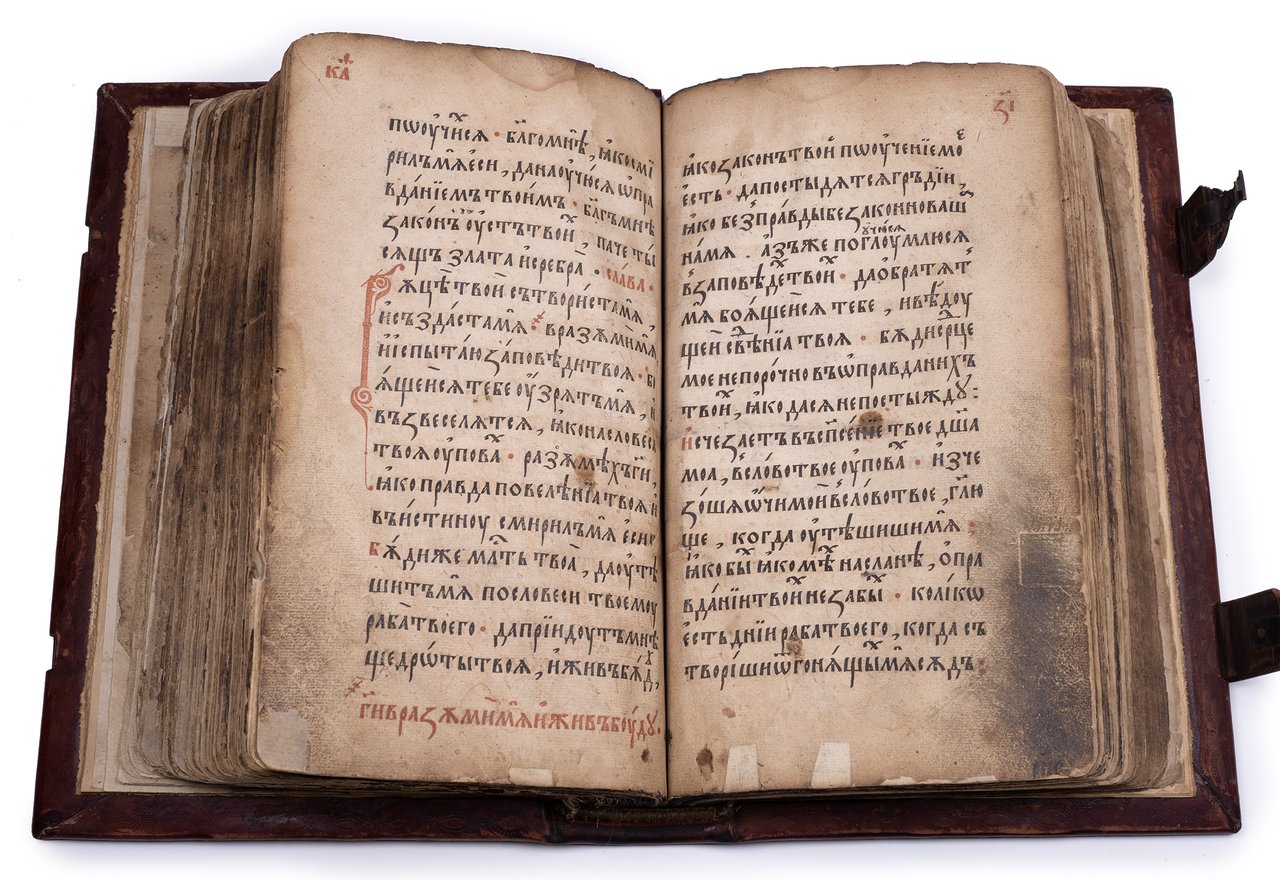 кл҃а
пѡоу́ч́исѧ · бл҃гомнѣ̀, ꙗ҆космі
рилъмѧ̑еси, данаꙋчю́сѧ ѡ҆пра
вда́нїемътвои́мъ · бл҃гъмнѣ
ꙁако́нъ ѹ҆стътвои̑, паче ты́
сѧщъ злата и҆сребра̀ · сла́ва ·
Рꙋцѣ твои̑ сътвори́стамѧ̀,
и҆съꙁда́стамѧ̀ · вразꙋми́мѧ
и҆испыта́юꙁа́повѣдитвоѧ · бо
ѧ́щеисѧтебе оу́зрѧтъмѧ̀, и҆
въꙁвеселѧтсѧ, ꙗ҆конасловеса
твоѧоупова̑ · разꙋмѣ́хъги̑,
ꙗ҆ко правда повелѣ́нїатвоѧ и҆
въи́стинꙋ смирилъмѧ̀ есих
Бꙋ́ди же мл҃ть твоа̀, даоу́тѣ
шитъмѧ̀ пословеси твоемоу
раба̀твоего · даприїидоутъмнѣ
щедрѡ́ты твоѧ, и҆живъ бꙋ́д̾,
ги҃ вразꙋми́мѧ и҆живъ боу́дꙋ ·
ꙁ҃і
ꙗ҆коꙁако́нътвой пѡоуче́нїемо е
е́сть · дапостыдѧ́тсѧгръ́дїи,
ꙗ҆ко бе́ꙁпра́вдыбеꙁаконноваш
на́мѧ · а҆зъже поглоумлюсѧ
учюсѧ
вꙁаповѣ́дствой · даѡ҆братѧ́т̾
мѧ̀ боѧ́щеисѧ тебе, и҆вѣ́доу
щеи̑ свѣ́нїѧ твоѧ · бꙋ́ди ср҃це
мое непоро́чно въ ѡ҆правданихъ
твои̑, ꙗ҆ко дасѧ непостыждꙋ :
И҆счеꙁаетъ въ сп҃се́нїе твое дш҃а
моа, вело́вотвое оу́пова̑ · и҆зче
ꙁо́шѧѡ́чимои вело́вотвое, гл҃ю
ще, когда оу́тѣшишимѧ̀ :
ꙗ҆ко бы́х ꙗ҆ко мѣ̑ на сланѣ, о҆пра
вда́нїи твои̑ неꙁабы̑ · колі́кѡ
е҆сть днїи раба твоего, когда съ
твори́ши ѿ гонѧ́щы́мѧ сꙋдъ :